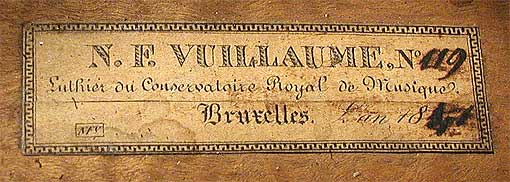 N. F. VUILLAUME, Nº 119
Luthier du Conservatoire Royal de Musique.
Bruxelles. L'an